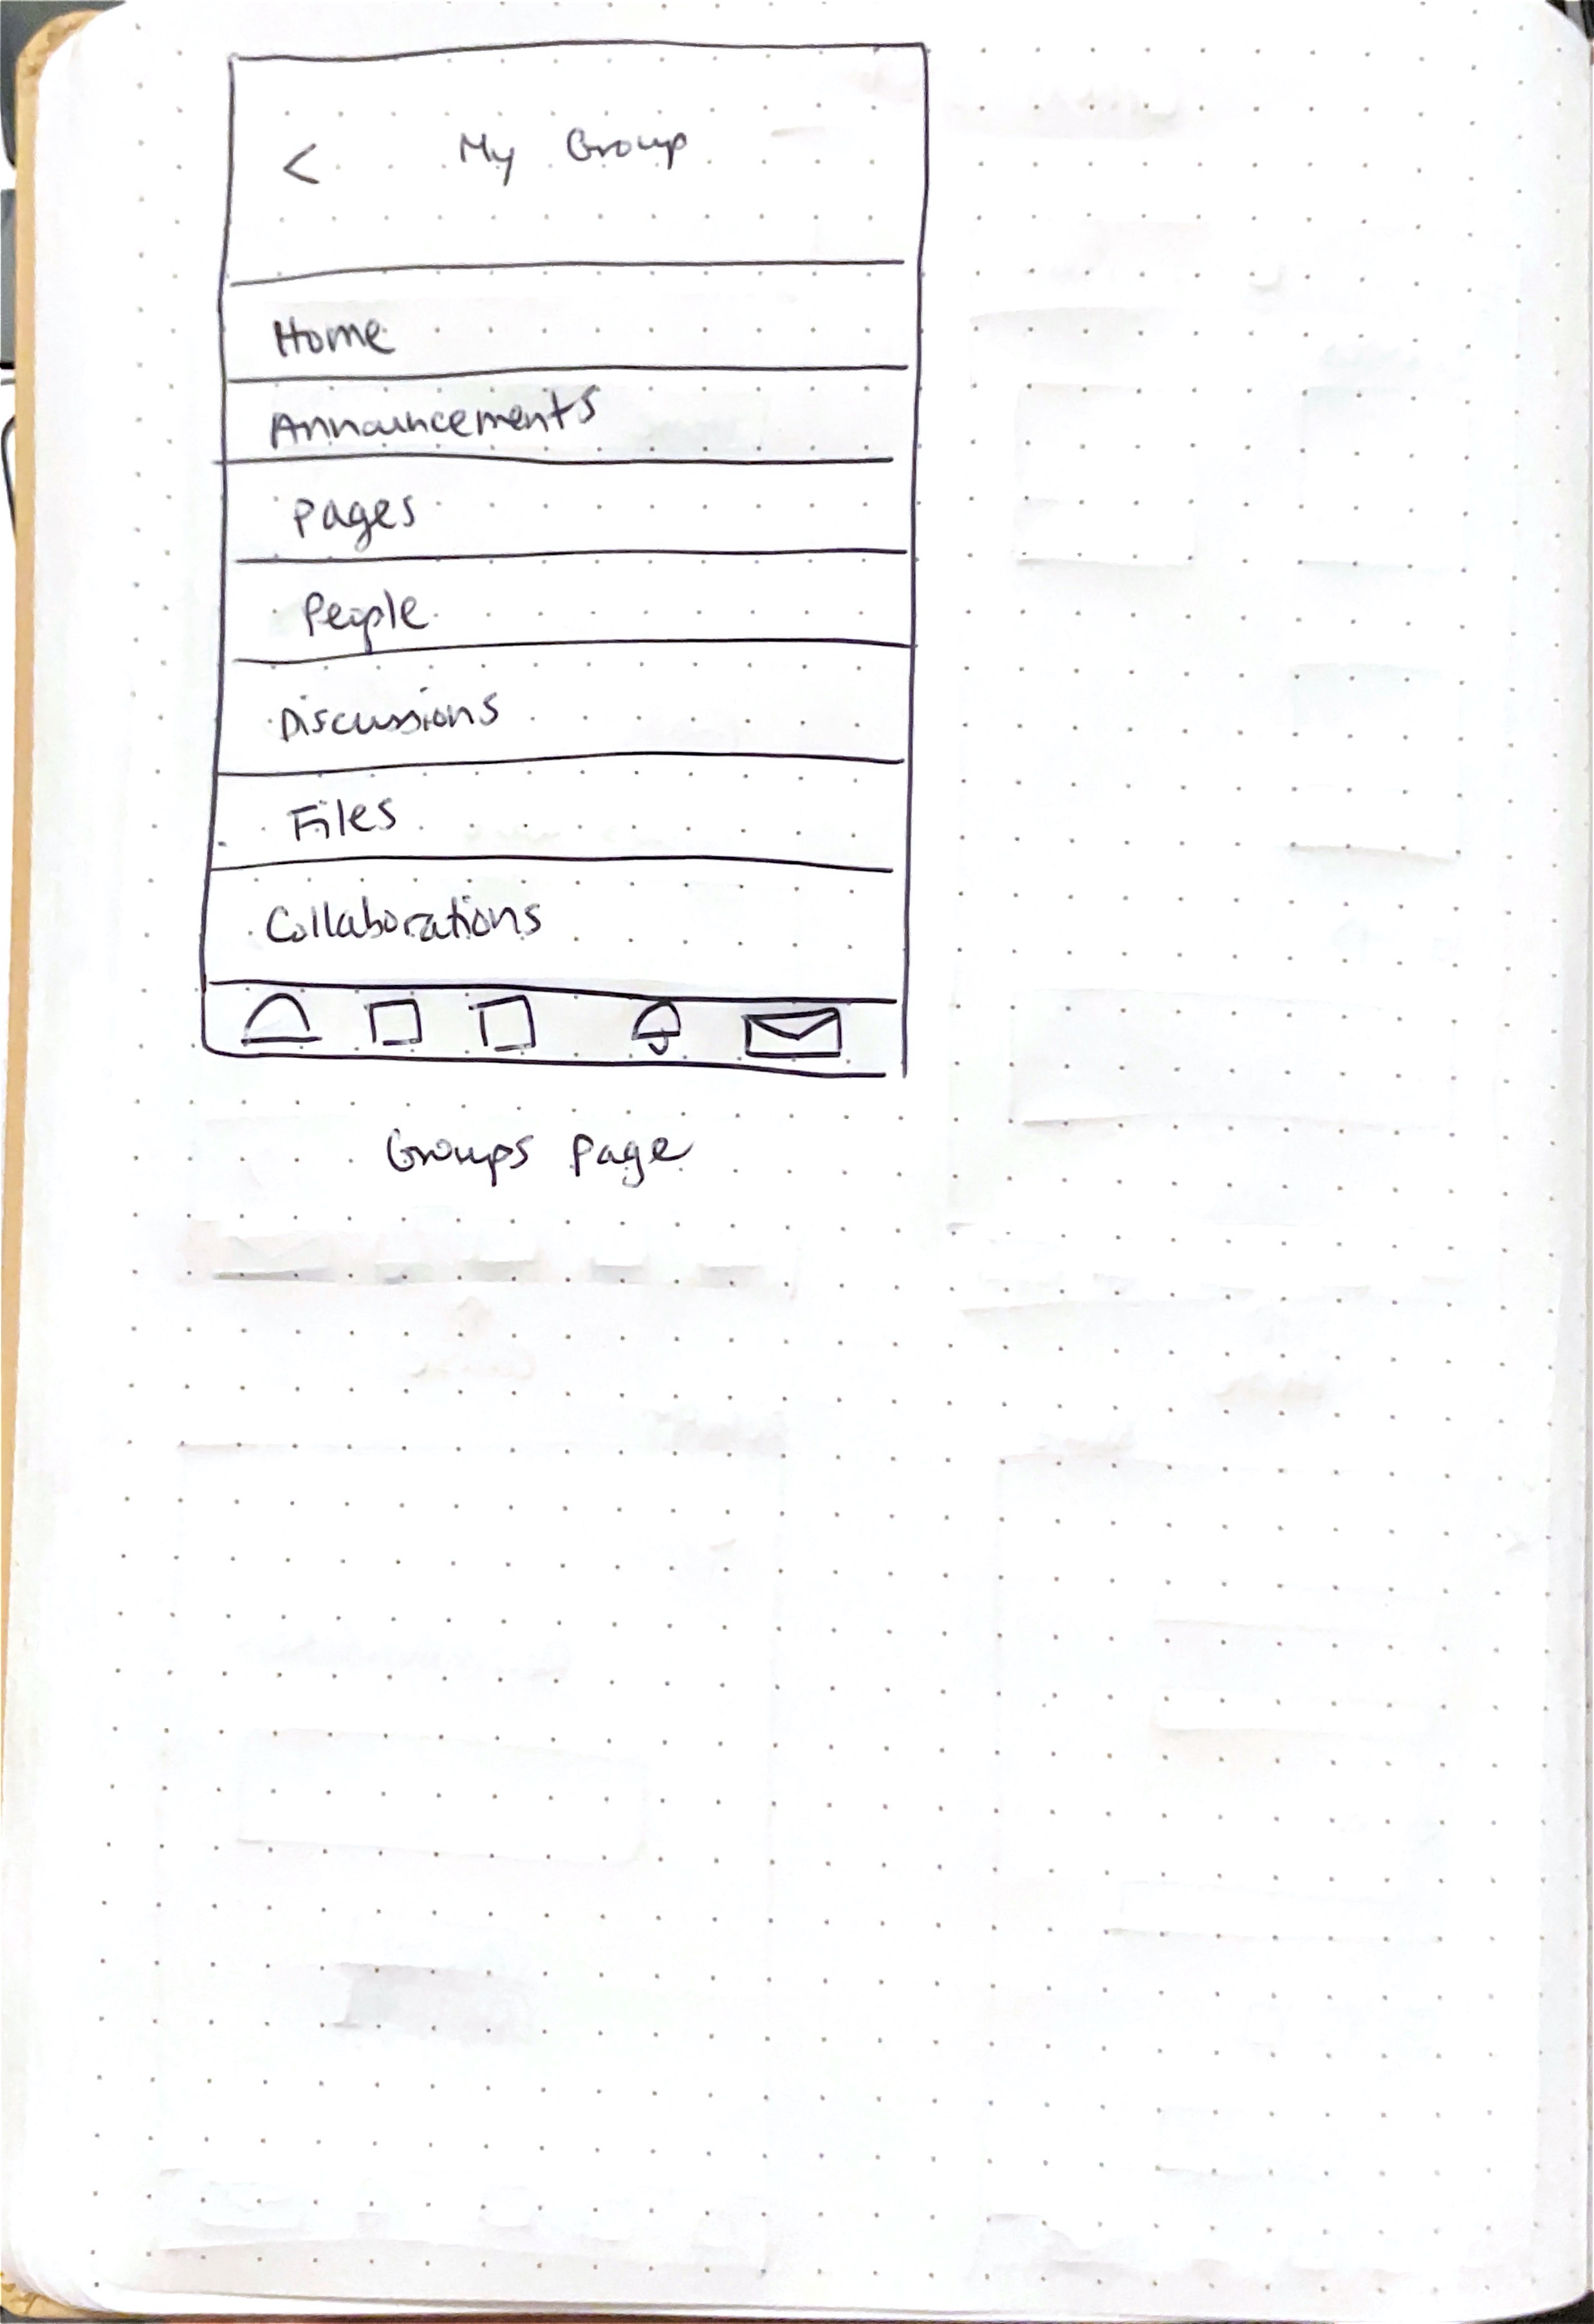 < My Group
Home
Announcements
Pages
People
Discussions
Files
Collaborations
Groups Page